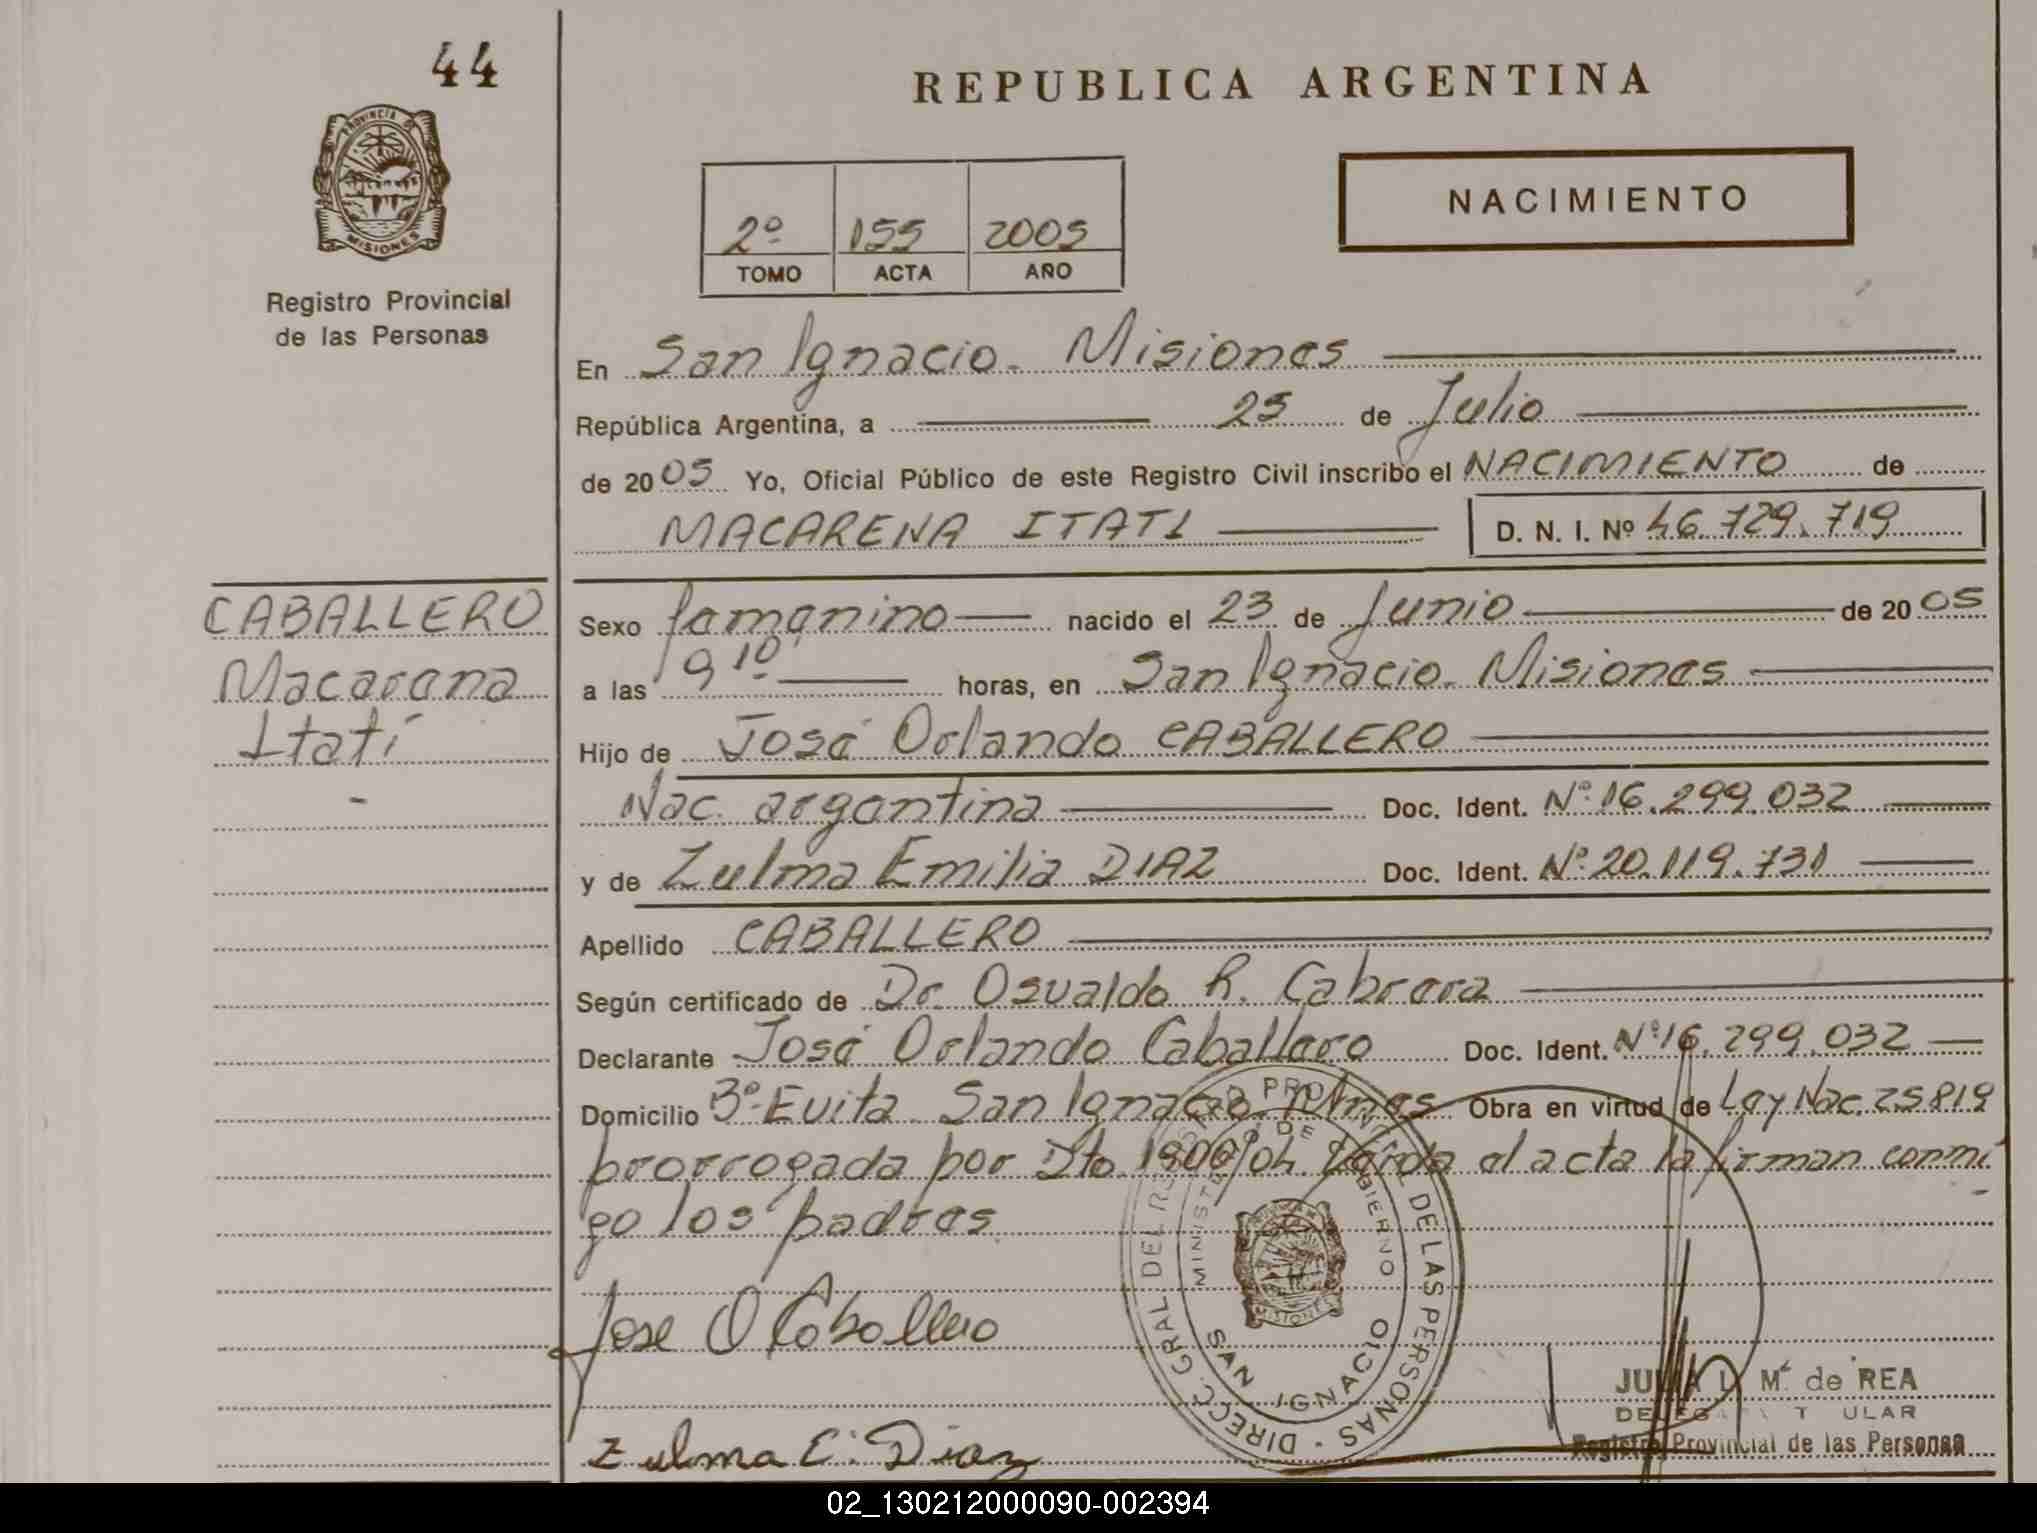 44
REPUBLICA ARGENTINA
PROVINCIA DE
MISIONES
Registro Provincial
de las Personas
NACIMIENTO
2º 155 2005
TOMO ACTA AÑO
En San Ignacio - Misiones
República Argentina, a 25 de Julio
de 2005 Yo, Oficial Público de este Registro Civil inscribo el NACIMIENTO de
MACARENA ITATI D. N. I. Nº 46.729.719
CABALLERO
Macarena
Itatí
-
Sexo femenino nacido el 23 de Junio de 2005
a las 9 10 horas, en San Ignacio - Misiones
Hijo de José Orlando CABALLERO
Nac. argentina Doc. Ident. Nº 16.299.032
y de Zulma Emilia DIAZ Doc. Ident. Nº 20.119.731
Apellido CABALLERO
Según certificado de Dr. Osvaldo R. Cabrera
Declarante José Orlando Caballero Doc. Ident. Nº 16.299.032
Domicilio Bº Evita San Ignacio Mnes Obra en virtud de Ley Nac. 25819
prorrogada por Dto. 1906/04 Leída el acta la firman conmi
go los padres
Jose O Caballero
Zulma E. Diaz
DIRECC. GRAL DEL REGISTRO PROVINCIAL DE LAS PERSONAS
MINISTERIO DE GOBIERNO
MISIONES
SAN IGNACIO
JULIA L Mª de REA
DELEGADA TITULAR
Registro Provincial de las Personas
02_130212000090-002394